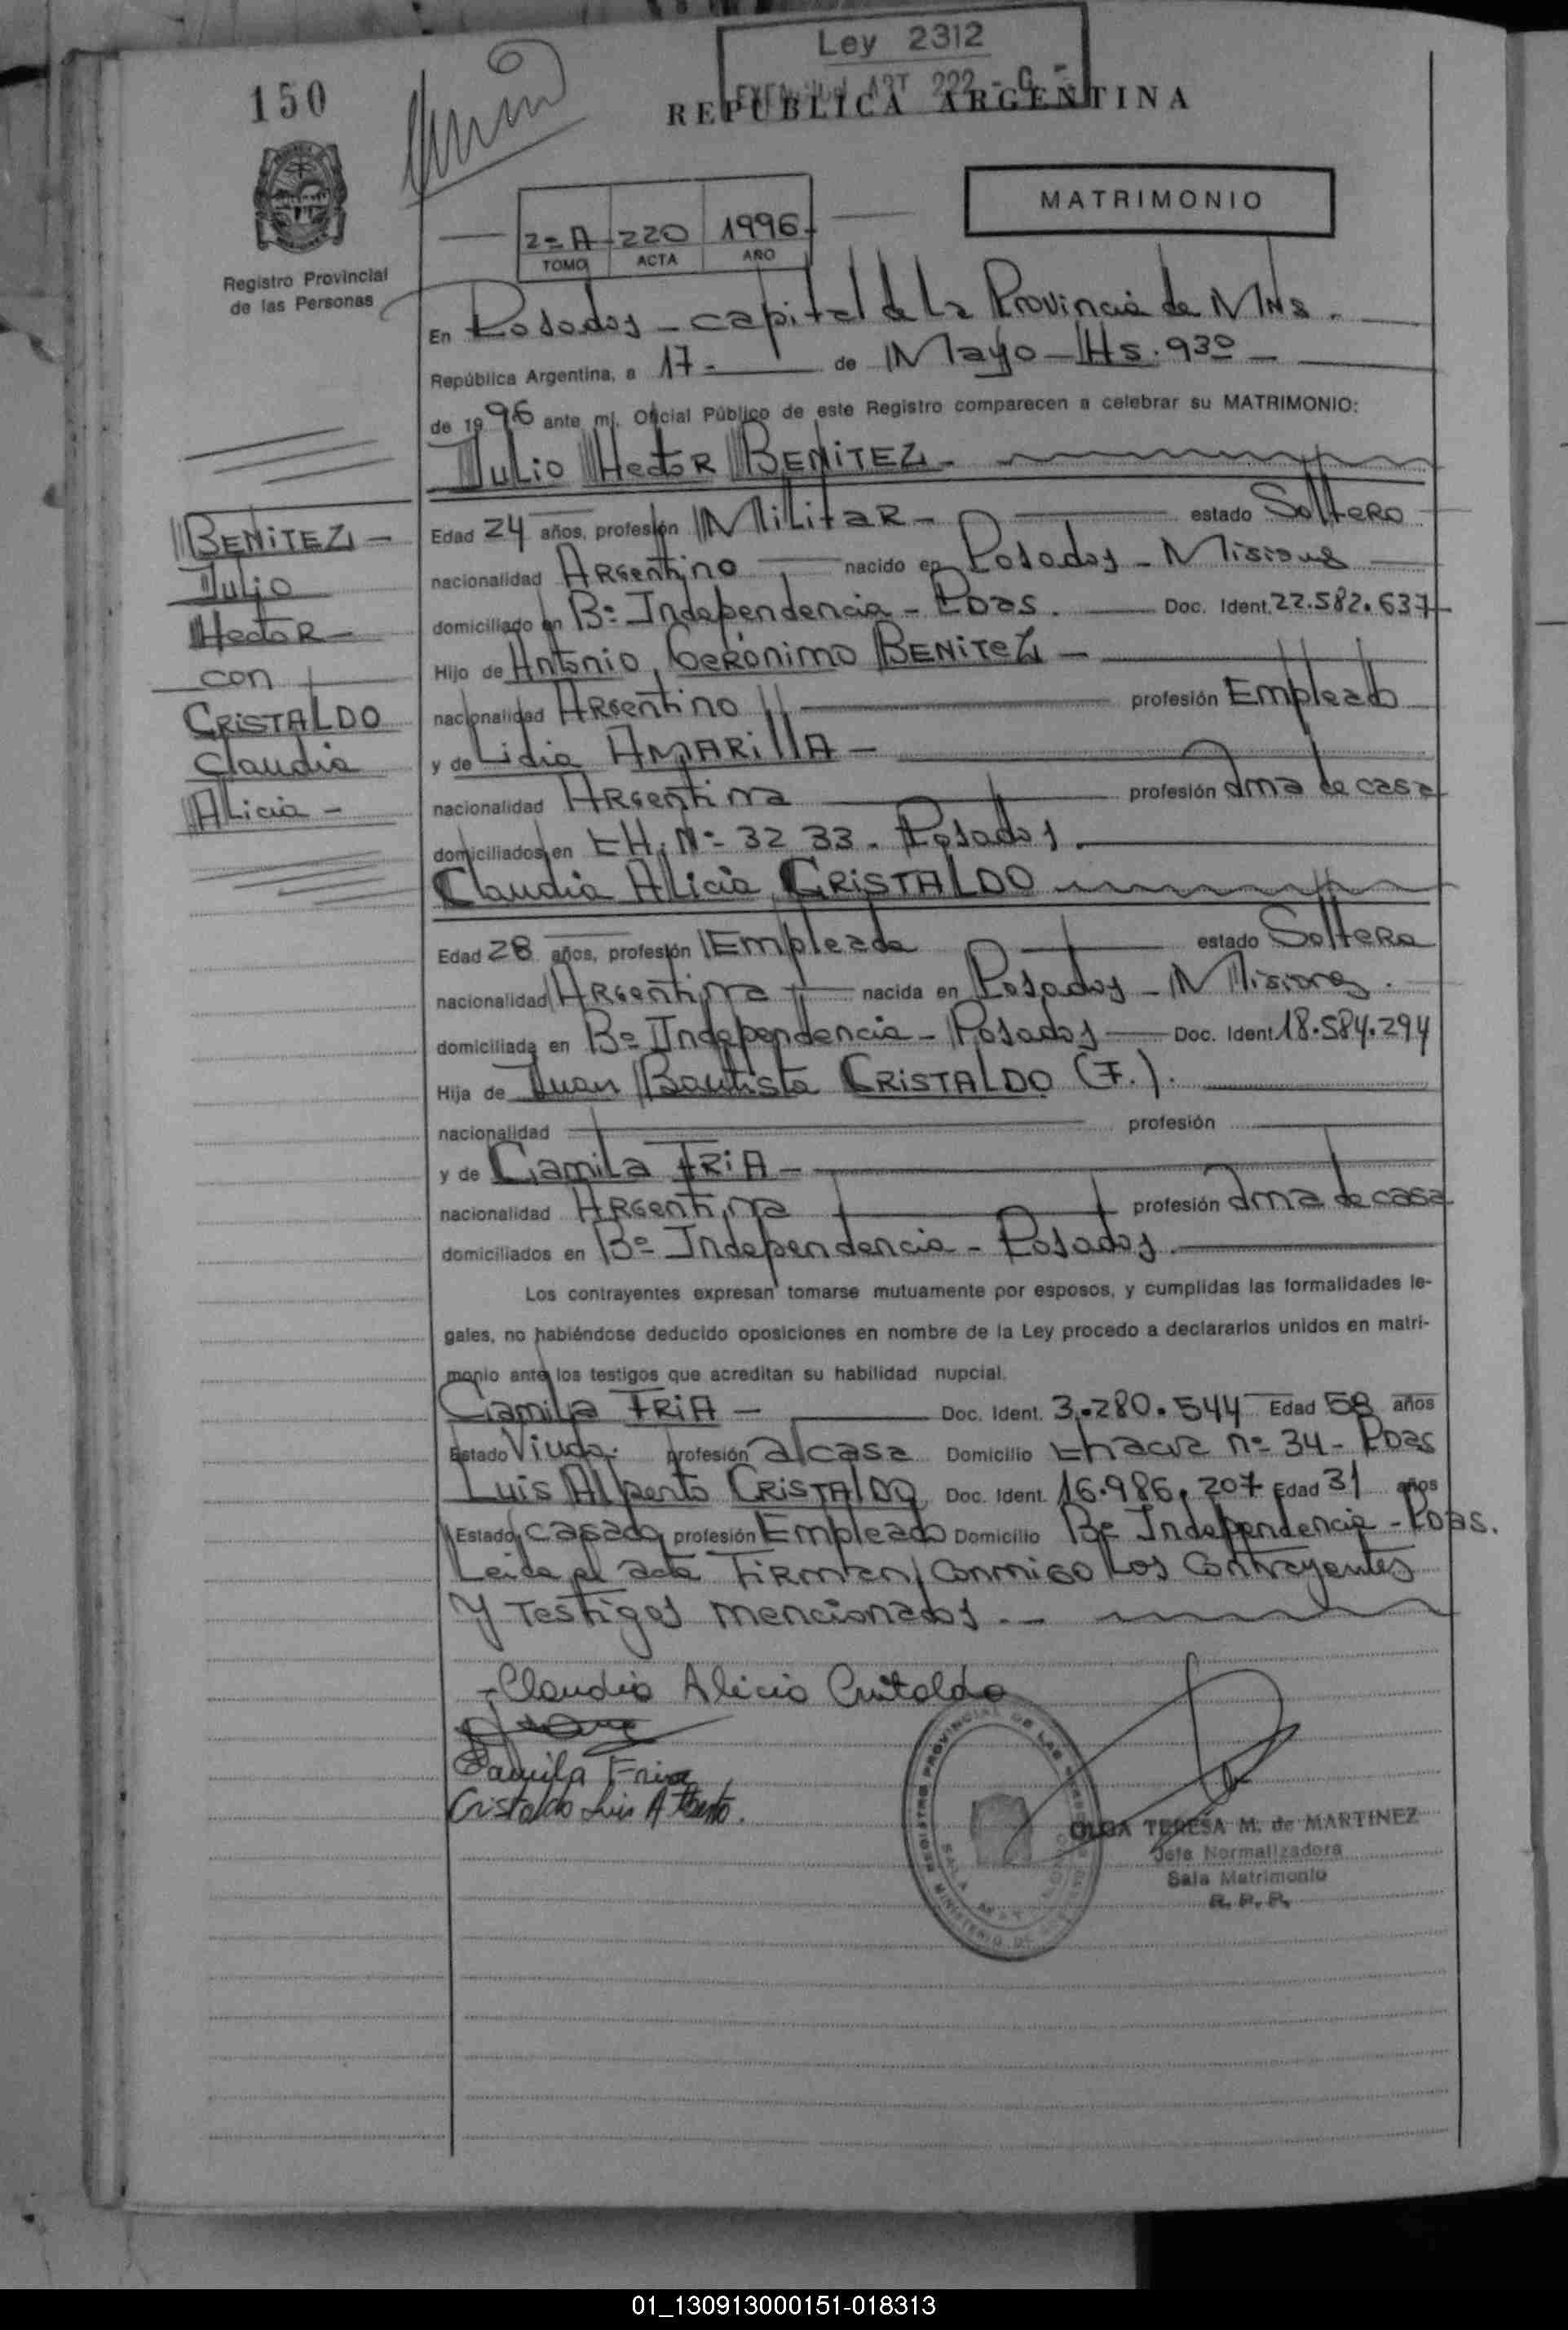 Ley 2312
ART 222
150
REPUBLICA ARGENTINA
MATRIMONIO
2=A 220 1996
TOMO ACTA AÑO
Registro Provincial
de las Personas
En Posadas - capital de la Provincia de Mns.
República Argentina, a 17- de Mayo - Hs. 930
de 1996 ante mí, Oficial Público de este Registro comparecen a celebrar su MATRIMONIO:
Julio Hector BENITEZ -
Edad 24 años, profesión Militar - estado Soltero
nacionalidad Argentino nacido en Posadas - Misiones
domiciliado en Bº Independencia - Pdas. Doc. Ident. 22.582.637
Hijo de Antonio Gerónimo BENITEZ -
nacionalidad Argentino profesión Empleado
y de Lidia AMARILLA -
nacionalidad Argentina profesión Ama de casa
domiciliados en CH. Nº 32 33. Posadas.
Claudia Alicia CRISTALDO
Edad 28 años, profesión Empleada estado Soltera
nacionalidad Argentina nacida en Posadas - Misiones.
domiciliada en Bº Independencia - Posadas Doc. Ident. 18.584.294
Hija de Juan Bautista CRISTALDO (F.).
nacionalidad profesión
y de Camila FRIA -
nacionalidad Argentina profesión Ama de casa
domiciliados en Bº Independencia - Posadas.
Los contrayentes expresan tomarse mutuamente por esposos, y cumplidas las formalidades le-
gales, no habiéndose deducido oposiciones en nombre de la Ley procedo a declararlos unidos en matri-
monio ante los testigos que acreditan su habilidad nupcial.
Camila FRIA - Doc. Ident. 3.280.544 Edad 58 años
Estado Viuda. profesión a/casa Domicilio Chacra nº 34 - Pdas
Luis Alberto CRISTALDO Doc. Ident. 16.986.207 Edad 31 años
Estado casado profesión Empleado Domicilio Bº Independencia - Pdas.
Leida el acta Firman conmigo los contrayentes
y Testigos mencionados. -
BENITEZ -
Julio
Hector -
con
CRISTALDO
Claudia
Alicia -
- Claudia Alicia Cristaldo
Camila Fria
Cristaldo Luis Alberto.
REGISTRO PROVINCIAL DE LAS
OLGA TERESA M. de MARTINEZ
Jefa Normalizadora
Sala Matrimonio
R. P. P.
01_130913000151-018313